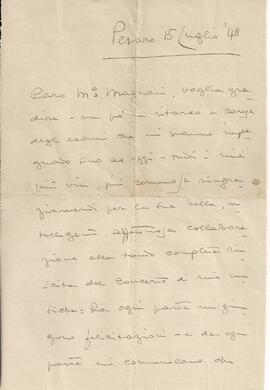 Pesaro 15 Luglio '48
Caro Mº Magnani, voglia gra
dire - un pò in ritardo a causa
degli esami che mi hanno impe
gnato fino ad oggi - tutti i miei
più vivi, più commossi ringra
ziamenti per la Sua bella, in
telligente, affettuosa collabora
zione alla tanto completa riu
scita del Concerto di mie mu
siche. Da ogni parte mi giun
gono felicitazioni - e da ogni
parte mi comunicano che